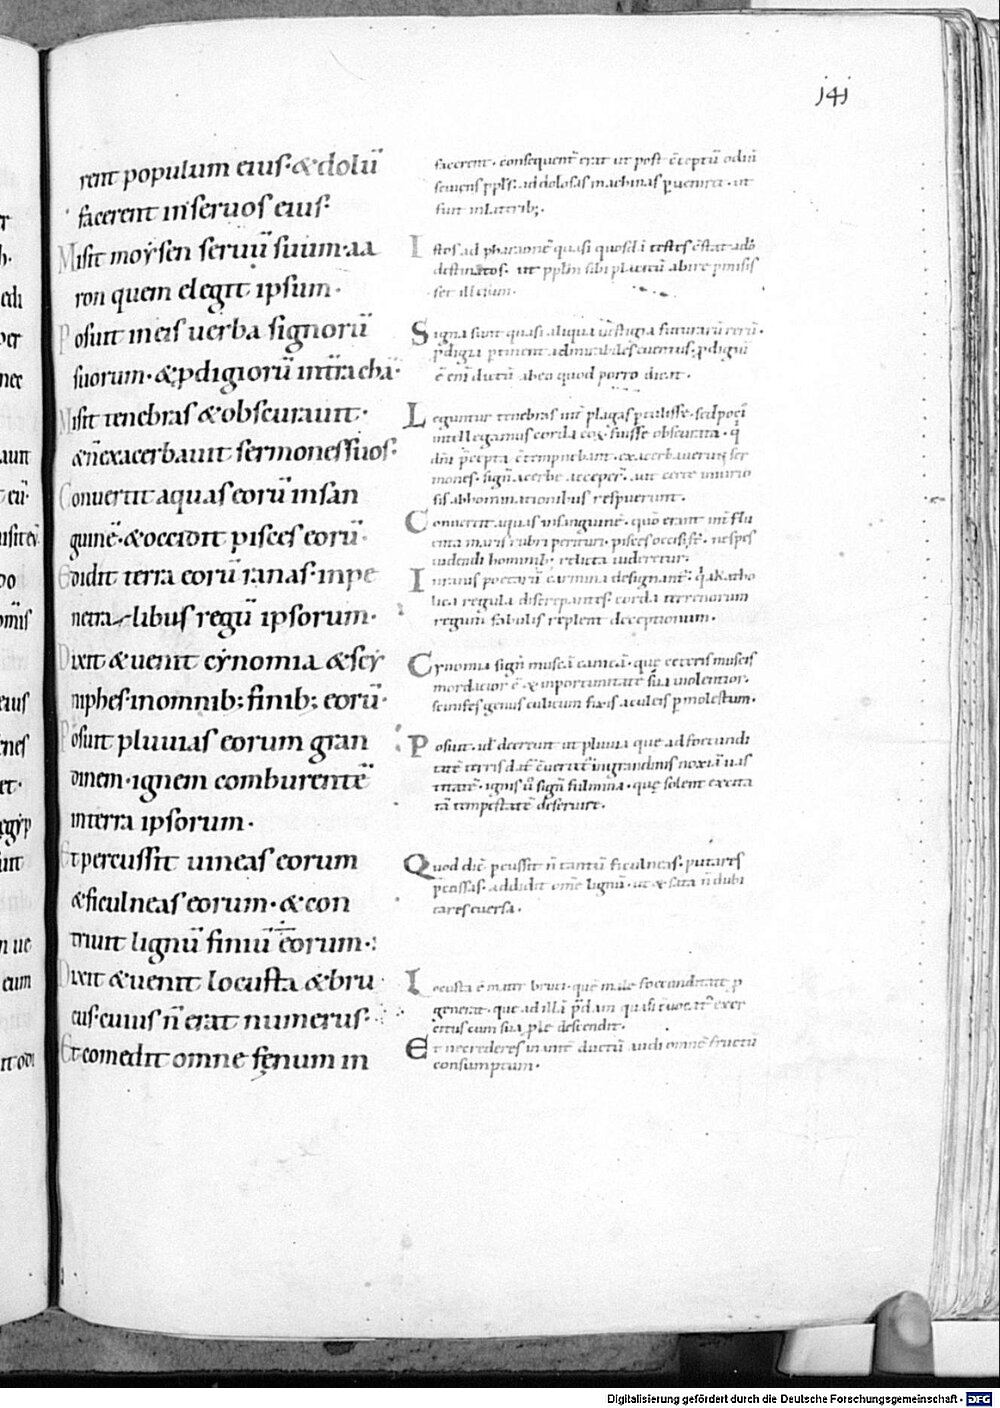 141
rent populum eius· & dolū
facerent in seruos eius·
Misit moysen seruū suum· aa
ron quem elegit ipsum·
Posuit in eis uerba signorū
suorum· & pdigiorū in tra chā·
Misit tenebras & obscurauit·
& n̄ exacerbauit sermones suos·
Conuertit aquas eorū in san
guinē· & occidit pisces eorū·
Edidit terra eorū ranas· in pe
netralibus regū ipsorum·
Dixit & uenit cynomia & scy
niphes· in omnib; finib; eorū·
Posuit pluuias eorum gran
dinem· ignem comburentē
in terra ipsorum·
Et percussit uineas eorum
& ficulneas eorum· & con
triuit lignū finiū eorum·
Dixit & uenit locusta & bru
cus· cuius n̄ erat numerus·
Et comedit omne fęnum in
facerent· consequenˉt erat ut post cˉceptū odiū
seuiens ppˉls· ad dolosas machinas pueniret· ut
sunt in latrib;·
Istos ad pharaonē quasi quosdā testes
destinatos· ut pplˉm sibi placitū abire pmisis
set illesum·
Signa sunt quasi aliqua uestigia futurarū rerū·
pdigia ptinent admirabiles euentus· pdigiū
ē enī dictū ab eo quod porro dicat·
Leguntur tenebras int̄ plagas ptulisse· sed
intellegamus corda eoꝝ fuisse obscurata· q̄
dn̄i pˉcepta cˉtempnebant· exacerbauerunt ser
mones· sign̄ acerbe acceper̄· aut certe
sis abhominationibus respuerunt·
Conuertit aquas in sanguinē· quō erant in flu
enta maris rubri perituri· pisces occisi st̄· ne spes
uidendi hominib; relicta uideretur·
In ranis poetarū carmina designant̄· q̄ a katho
lica regula discrepantes· corda terrenorum
regum fabulis replent deceptionum·
Cynomia sign̄ muscā caninā· quę ceteris muscis
mordacior ē & inportunitate sua uiolentior·
scinifes genus culicum fixis aculeis pmolestum·
Posuit· id ē decreuit ut pluuia que ad fecundi
tatē terris dat̄ cˉuertet̄ in grandinis noxiā uas
titatē· ignis ū sign̄ fulmina· quę solent excita
tā tempestatē deseruire·
Quod dic̄ pcussit n̄ tantū ficulneas· putares
pcussas· addidit om̄e lignū· ut & sata n̄ dubi
tares euersa·
Locusta ē mat̄ bruci· quē male foecunditatis p
generat· que ad illā pˉdam quasi cˉuocat̄ exer
citus cum sua ple descendit·
Et ne crederes inanit̄ ductū audi omnē fructū
consumptum·
Digitalisierung gefördert durch die Deutsche Forschungsgemeinschaft - DFG